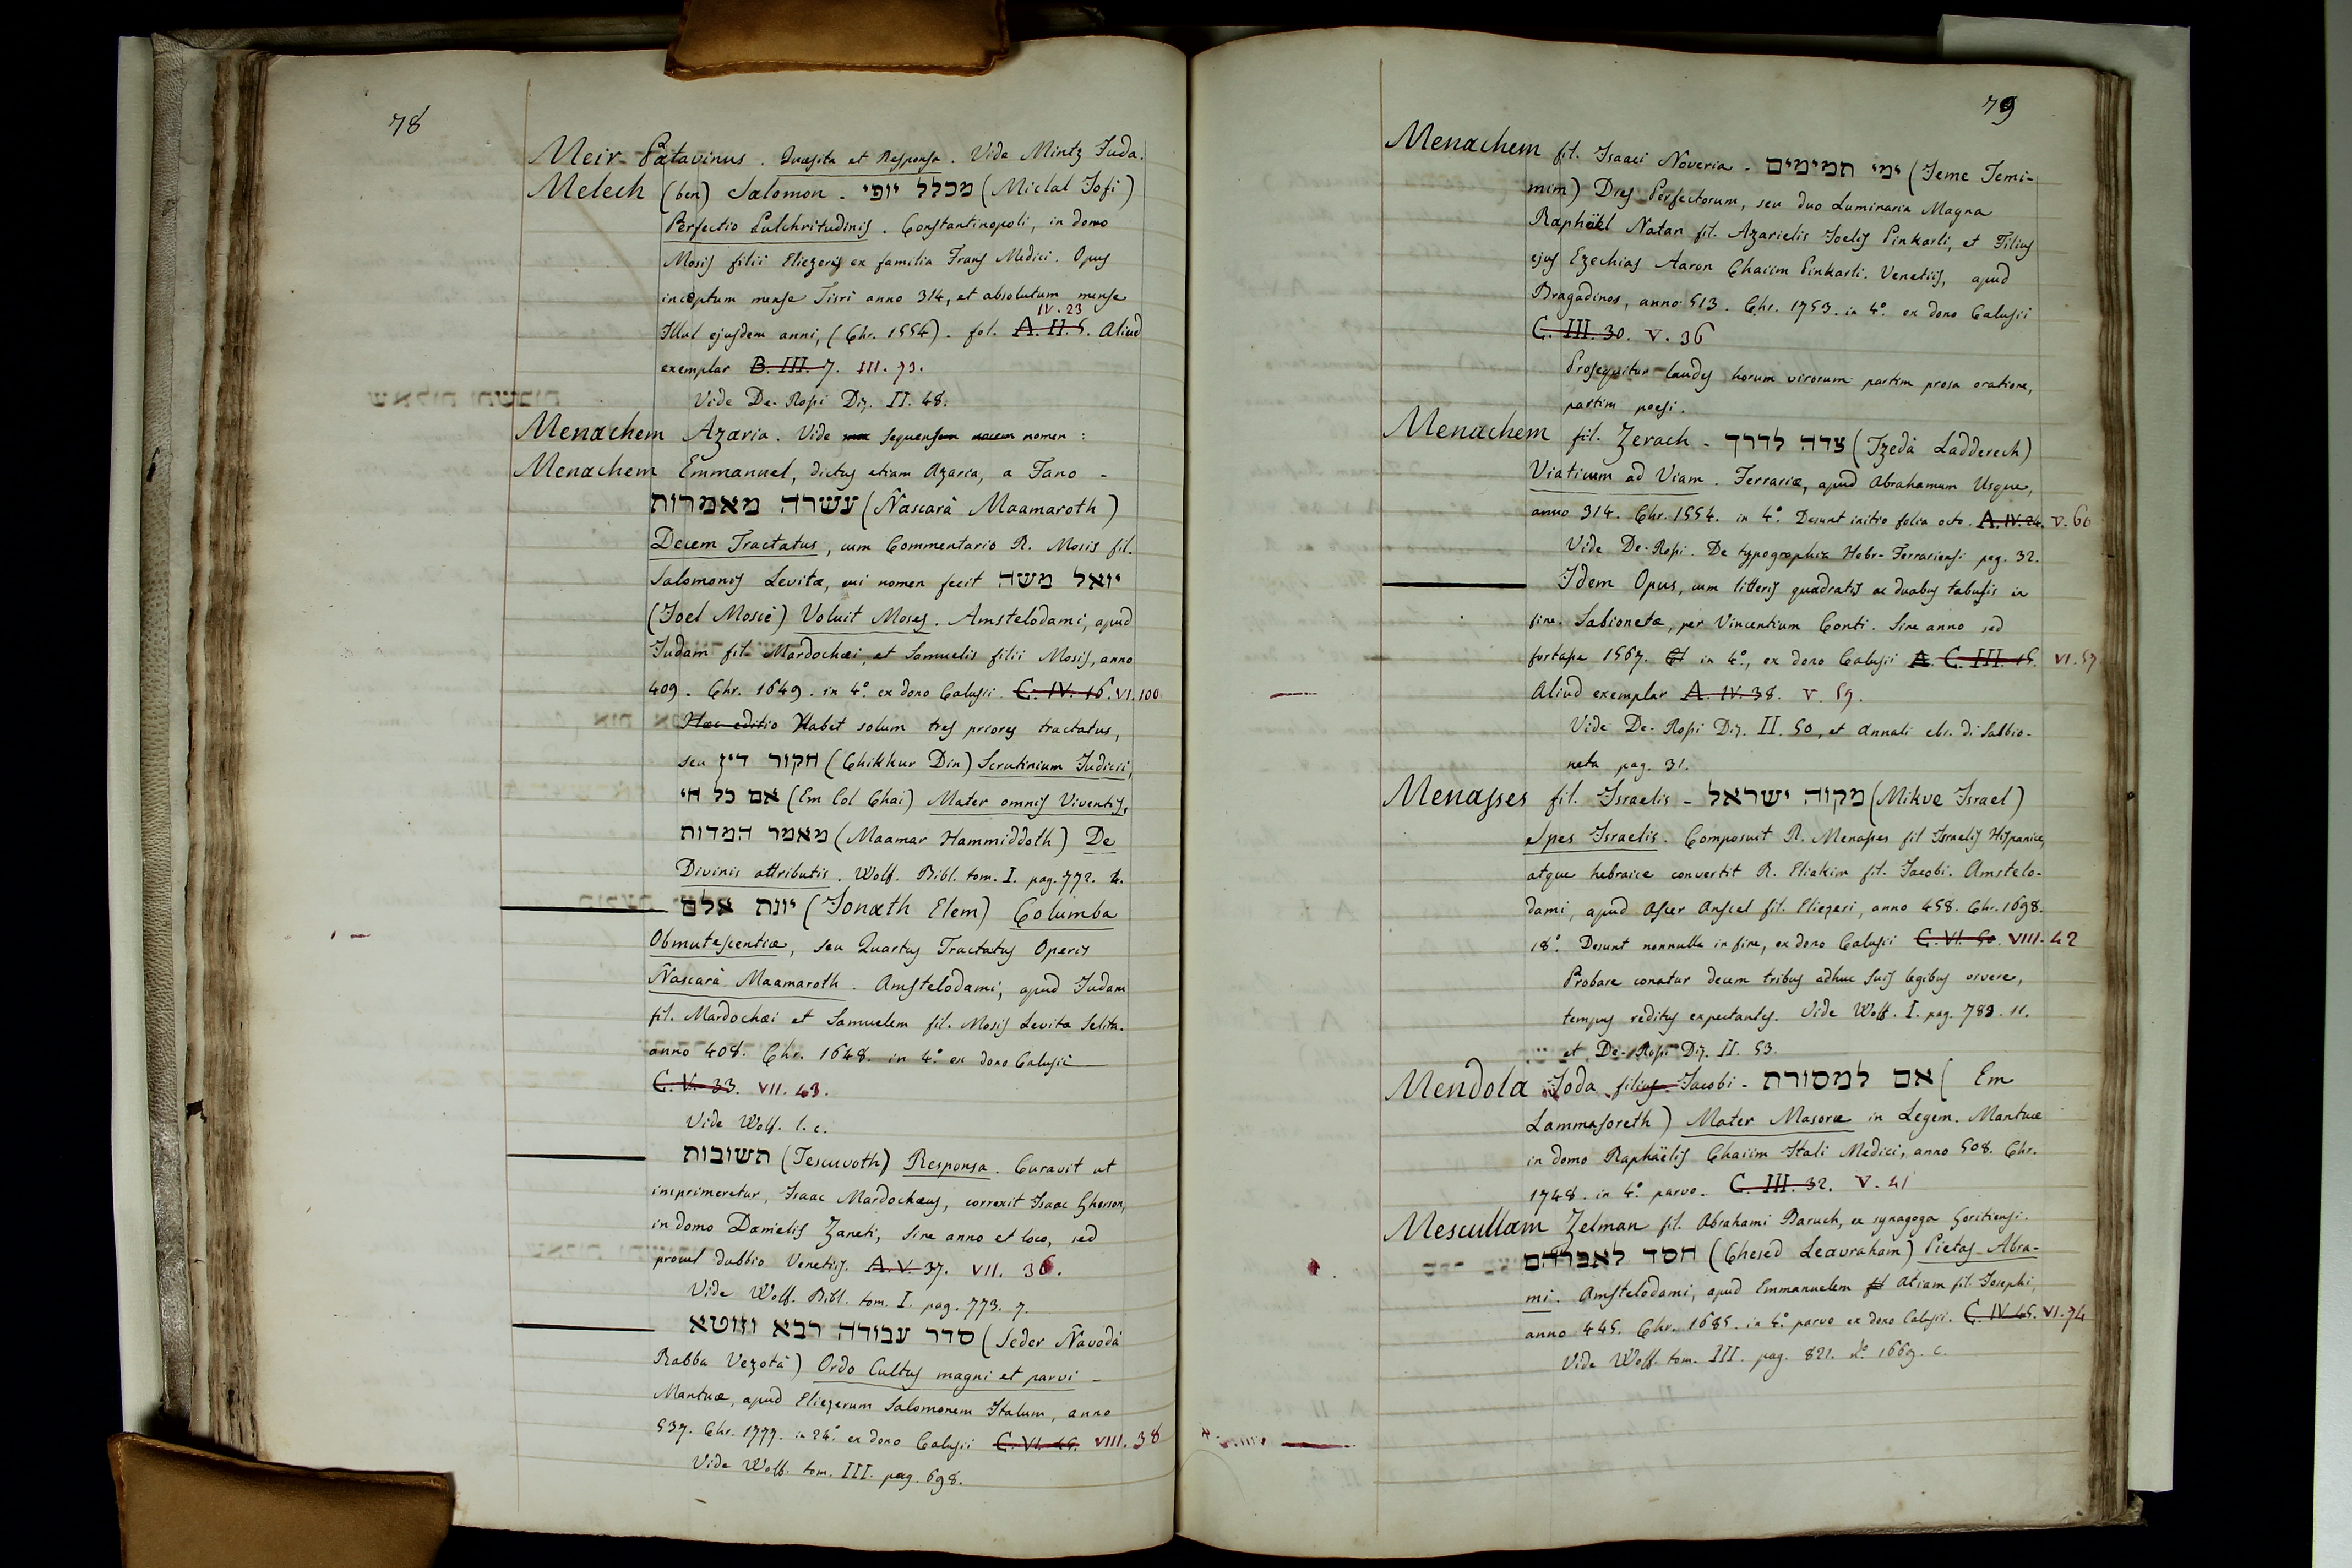 78
Meir Patavinus. Quæsita et Responsa. Vide Mintz Juda.
Melech (ben) Salomon. מכלל יופי (Miclal Jofi)
Perfectio Pulchritudinis. Constantinopoli, in domo
Mosis filii Eliezeris ex familia Frans Medici. Opus
inceptum mense Tisri anno 314, et absolutum mense
IV. 23
Illul ejusdem anni, (Chr. 1554). fol. A. II. 5. Aliud
exemplar B. III. 7. III. 73.
Vide De-Rossi Diz. II. 48.
Menachem Azaria. Vide sequens nomen:
Menachem Emmanuel, dictus etiam Azaria, a Fano -
עשרה מאמרות (Ñascarà Maamaroth)
Decem Tractatus, cum Commentario R. Mosis fil.
Salomonis Levitæ, cui nomen fecit יואל משה
(Joel Moscè) Voluit Moses. Amstelodami, apud
Judam fil. Mardochæi, et Samuelis filii Mosis, anno
409. Chr. 1649. in 4.° ex dono Calusii C. IV. 16. VI. 100
Hæc editio Habet solum tres priores tractatus,
seu חקור דין (Chikkur Din) Scrutinium Judicii,
אם כל חי (Em Col Chai) Mater omnis Viventis,
מאמר המדות (Maamar Hammiddoth) De
Divinis attributis. Wolf. Bibl. tom. I. pag. 772. 2.
יונת אלם (Jonath Elem) Columba
Obmutescentiæ, seu Quartus Tractatus Operis
Ñascarà Maamaroth. Amstelodami, apud Judam
fil. Mardochæi et Samuelem fil. Mosis Levitæ Selita.
anno 408. Chr. 1648. in 4.° ex dono Calusii
C. V. 33. VII. 43.
Vide Wolf. l. c.
תשובות (Tescuvoth) Responsa. Curavit ut
imprimeretur, Isaac Mardochæus, correxit Isaac Gherson,
in domo Danielis Zaneti, sine anno et loco, sed
procul dubbio Venetiis. A. V. 37. VII. 36.
Vide Wolf. Bibl. tom. I. pag. 773. 7.
סדר עבודה רבא וזוטא (Seder Ñavodà
Rabba Vezotà) Ordo Cultus magni et parvi -
Mantuæ, apud Eliezerum Salomonem Italum, anno
537. Chr. 1777. in 24.° ex dono Calusii C. VI. 45. VIII. 38
Vide Wolf. tom. III. pag. 698.
79
Menachem fil. Isaaci Noveria. ימי תמימים (Jeme Temi-
mim) Dies Perfectorum, seu duo Luminaria Magna
Raphäel Natan fil. Azarielis Joelis Pinkarli, et Filius
ejus Ezechias Aaron Chaiim Pinkarli. Venetiis, apud
Bragadinos, anno 513. Chr. 1753. in 4.° ex dono Calusii
C. III. 30. V. 36
Prosequitur laudes horum virorum partim prosa oratione,
partim poesi.
Menachem fil. Zerach - צדה לדרך (Tzedà Ladderech)
Viaticum ad Viam. Ferrariæ, apud Abrahamum Usque,
anno 314. Chr. 1554. in 4.° Desunt initio folia octo. A. IV. 24. V. 60
Vide De-Rossi. De typographia Hebr-Ferrariensi pag. 32.
Idem Opus, cum litteris quadratis ac duabus tabulis in
fine. Sabionetæ, per Vincentium Conti. Sine anno sed
fortasse 1567. in 4.°, ex dono Calusii A. C. III. 15. VI. 57
Aliud exemplar A. IV. 38. V. 59.
Vide De-Rossi Diz. II. 50, et Annali ebr. di Sabbio-
neta pag. 31.
Menasses fil. Israelis - מקוה ישראל (Mikve Israel)
Spes Israelis. Composuit R. Menasses fil Israelis Hispanice,
atque hebraice convertit R. Eliakim fil. Jacobi. Amstelo-
dami, apud Ascer Anscel fil. Eliezeri, anno 458. Chr. 1698.
18.° Desunt nonnulla in fine, ex dono Calusii C. VI. 50. VIII. 42
Probare conatur decem tribus adhuc suis legibus vivere,
tempus reditus expectantes. Vide Wolf. I. pag. 783. 11.
et De-Rossi Diz. II. 53.
Mendola Joda filius Jacobi - אם למסורת (Em
Lammasoreth) Mater Masoræ in Legem. Mantuæ
in domo Raphäelis Chaiim Itali Medici, anno 508. Chr.
1748. in 4.° parvo. C. III. 32. V. 41
Mescullam Zelman fil. Abrahami Baruch, ex synagoga Goritiensi.
חסד לאברהם (Chesed Leavraham) Pietas Abra-
mi. Amstelodami, apud Emmanuelem Atiam fil. Josephi,
anno 445. Chr. 1685. in 4.° parvo ex dono Calusii. C. IV. 45. VI. 74
Vide Wolf. tom. III. pag. 821. N.° 1669. c.